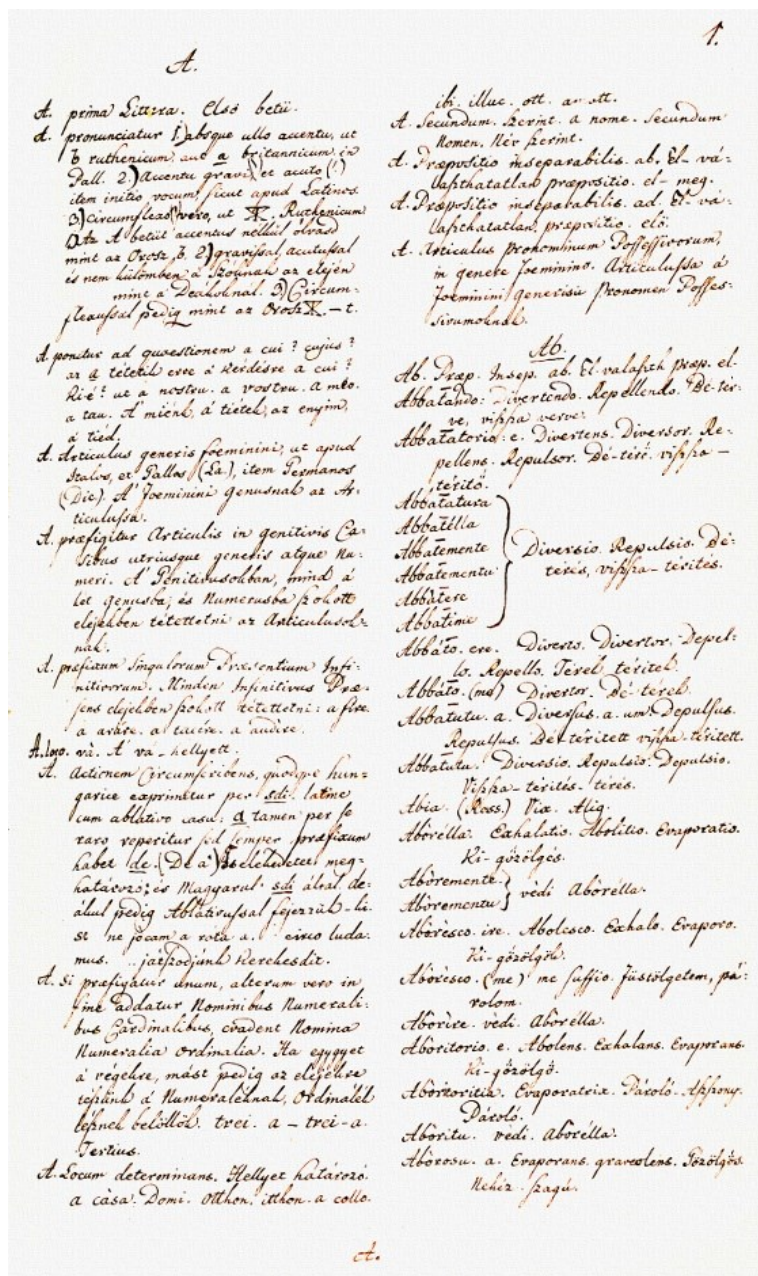 1.
A.
A. prima Littera. Első betű.
A. pronunciatur 1.) absque ullo accentu, ut
ъ ruthenicum, aut a britannicum in
Pall. 2.) Accentu gravi(`) et acuto (´)
item initio vocum, sicut apud Latinos.
3.) Circumflexus vero, ut Ѫ. Ruthenicum
Az A betüt accentus nélkül olvasd
mint az Orosz ъ. 2.) gravissal, acutussal
és nem külömben a Szóknak az elején
mint a Deákoknál. 3.) Circum-
flexussal pedig mint az Orosz Ѫ – t.
A. ponitur ad quaestionem a cui? cujus?
az a tétetik erre a Kérdésre a cui?
Ki-é? ut a nostru. a vostru. a meo.
a tau. A' miénk, á tiétek, az enyim,
á tiéd.
A. Articulus generis foeminini, ut apud
Italos, et Gallos (La.), item Germanos
(Die). A' Foeminini Genusnak az Ar-
ticulussa.
A. praefigitur Articulis in genitivis Ca-
sibus utriusque generis atque Nu-
meri. A' Genitivusokban, mind á
két genusba, és Numerusba szokott
elejekben tétettetni az Articulusok-
nak.
A. praefixum singulorum Praesentium Infi-
nitivorum. Minden Infinitivus Prae-
sens elejekben szokott tétettetni: a fire.
a aráre. a tacére. a audire.
A. loco. và. A' vá-hellyett.
A. Actionem Circumscribens, quodque hun-
garice exprimitur per sdi. latine
cum ablativo casu: a tamen per se
raro reperitur sed semper praefixum
habet de. (De a') Cselekedetet meg-
határozó; és Magyarul sdi által. de-
ákul pedig Ablativussal fejezzük-ki.
st ne jocam a rota a. circo luda-
mus. jatszodjunk Kerekesdit.
A. Si praefigatur unum, alterum vero in
fine addatur Nominibus Numerali-
bus Cardinalibus, evadent Nomina
Numeralia Ordinalia. Ha egygyet
á végekre, mást pedig az elejekre
teszünk á Numeraléknak, Ordinálék
lésznek belöllök. trei. a – trei-a.
Tertius.
A. Locum determinans. Hellyet határozó.
a càsa. Domi. otthon. itthon. a collo.
ibi. illuc. ott. amott.
A. Secundum. Szerint. a nome. Secundum
Nomen. Név szerint.
A. Praepositio inseparabilis. ab. El-vá-
laszthatatlan praepositio. el-meg.
A. Praepositio inseparabilis. ad. El-vá-
laszthatatlan, praepositio. elö.
A. Articulus pronominum Possessivorum,
in genere Foeminino. Articulussa á
Foeminini generisü Pronomen Posses-
sivumoknak.
Ab.
Ab. Praep. Insep. ab. El-valaszth. praep. el.
Abbatando: Divertendo. Repellendo. Bé-tér-
ve, viszsza verve.
Abbatatorio: e. Divertens. Diversor. Re-
pellens. Repulsor. Bé-térö. viszsza –
téritö.
Abbatatura
Abbatélla
Abbatemente
Abbatementu
Abbatere
Abbatime
Diversio. Repulsio. Bé-
térés, viszsza-térités.
Abbáto. ere. Diverto. Divertor. Depel-
lo. Repello. Térek, téritek.
Abbáto. (me) Divertor. Bé-térek.
Abbatutu. a. Diversus. a. um. Depulsus.
Repulsus. Bé-téritett viszsza téritett.
Abbatutu. Diversio. Repulsio. Depulsio.
Viszsza-térités-térés.
Abia. (Ross.) Vix. Alig.
Aborélla. Exhalatio. Abolitio. Evaporatio.
Ki-gözölgés.
Aboremente.
Aborementu
vèdi Aborélla.
Aborésco. ire. Abolesco. Exhalo. Evaporo.
Ki-gözölgök.
Aborésco. (me) me suffio. füstölgetem, pá-
rolom.
Aborire. vèdi. Aborélla.
Aboritorio. e. Abolens. Exhalans. Evaporans.
Ki-gözölgö.
Aboritoritia. Evaporatrix. Pároló-Aszszony.
Pároló.
Aboritu. vèdi. Aborélla.
Aborosu. a. Evaporans. graveolens. Gözölgös.
Nehéz. szagú.
A.